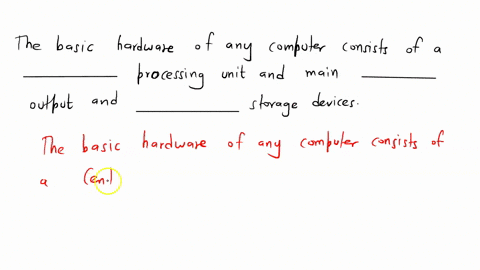 The basic hardware of any computer consists of a
__________ processing unit and main ________
output and ___________ storage devices.
The basic hardware of any computer consists of
a